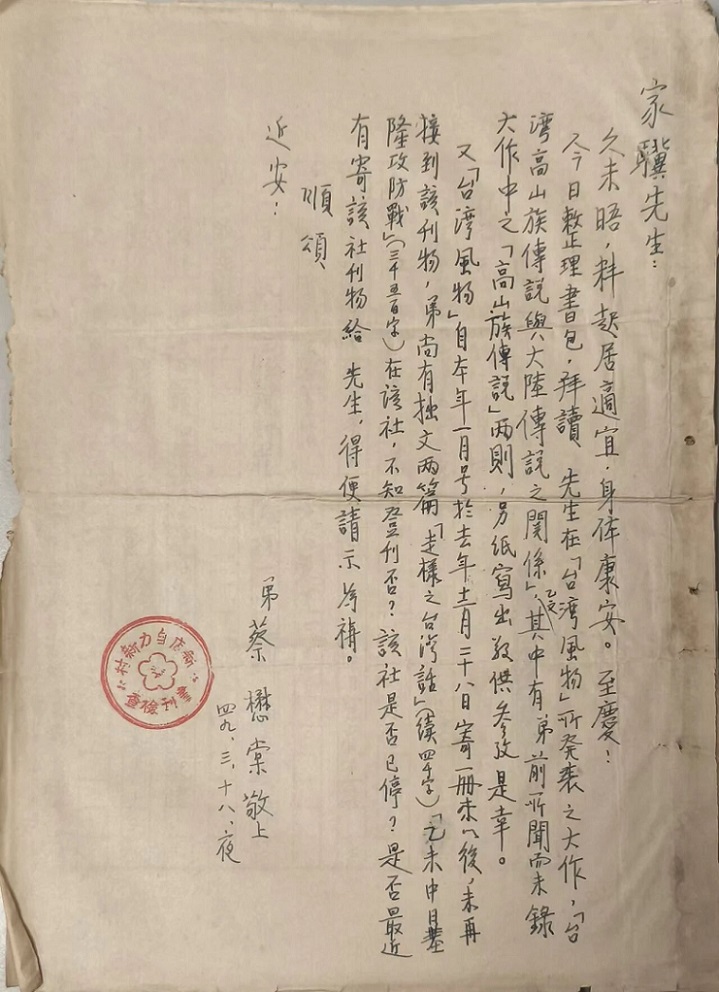 家驥先生：
久未晤，料起居適宜，身体康安。至慶！
今日整理書包，拜讀　先生在「台湾風物」所発表之大作，「台
湾高山族傳説與大陸傳説之関係」乙文，其中有弟前所聞而未錄
大作中之「高山族傳説」两則，另纸寫出敬供参攷是幸。
又「台湾風物」自本年一月号於去年十二月二十八日寄一冊来以後，未再
接到該刊物，弟尚有拙文两篇「走樣之台湾話」（續四千字）「乙未中日基
隆攻防戰」（三千五百字）在該社，不知登刊否？該社是否已停？是否最近
有寄該社刊物給　先生，得便請示為禱。
順頌
近安：
弟蔡懋棠敬上
四九、三、十八、夜
新店自力新村
書刊檢查